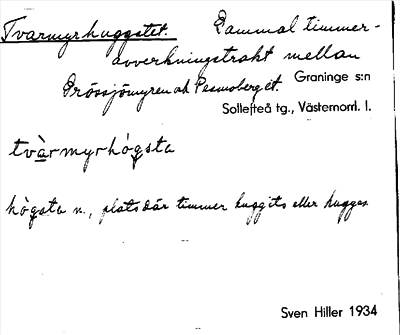 Tvärmyrhuggstet. Gammal timmer-
avverkningstrakt mellan
Grössjömyren och Pesmoberget. Graninge s:n
Sollefteå tg., Västernorrl. l.
tvὰrmyrhógsta
hògsta n., plats där timmer huggits eller hugges
Sven Hiller 1934